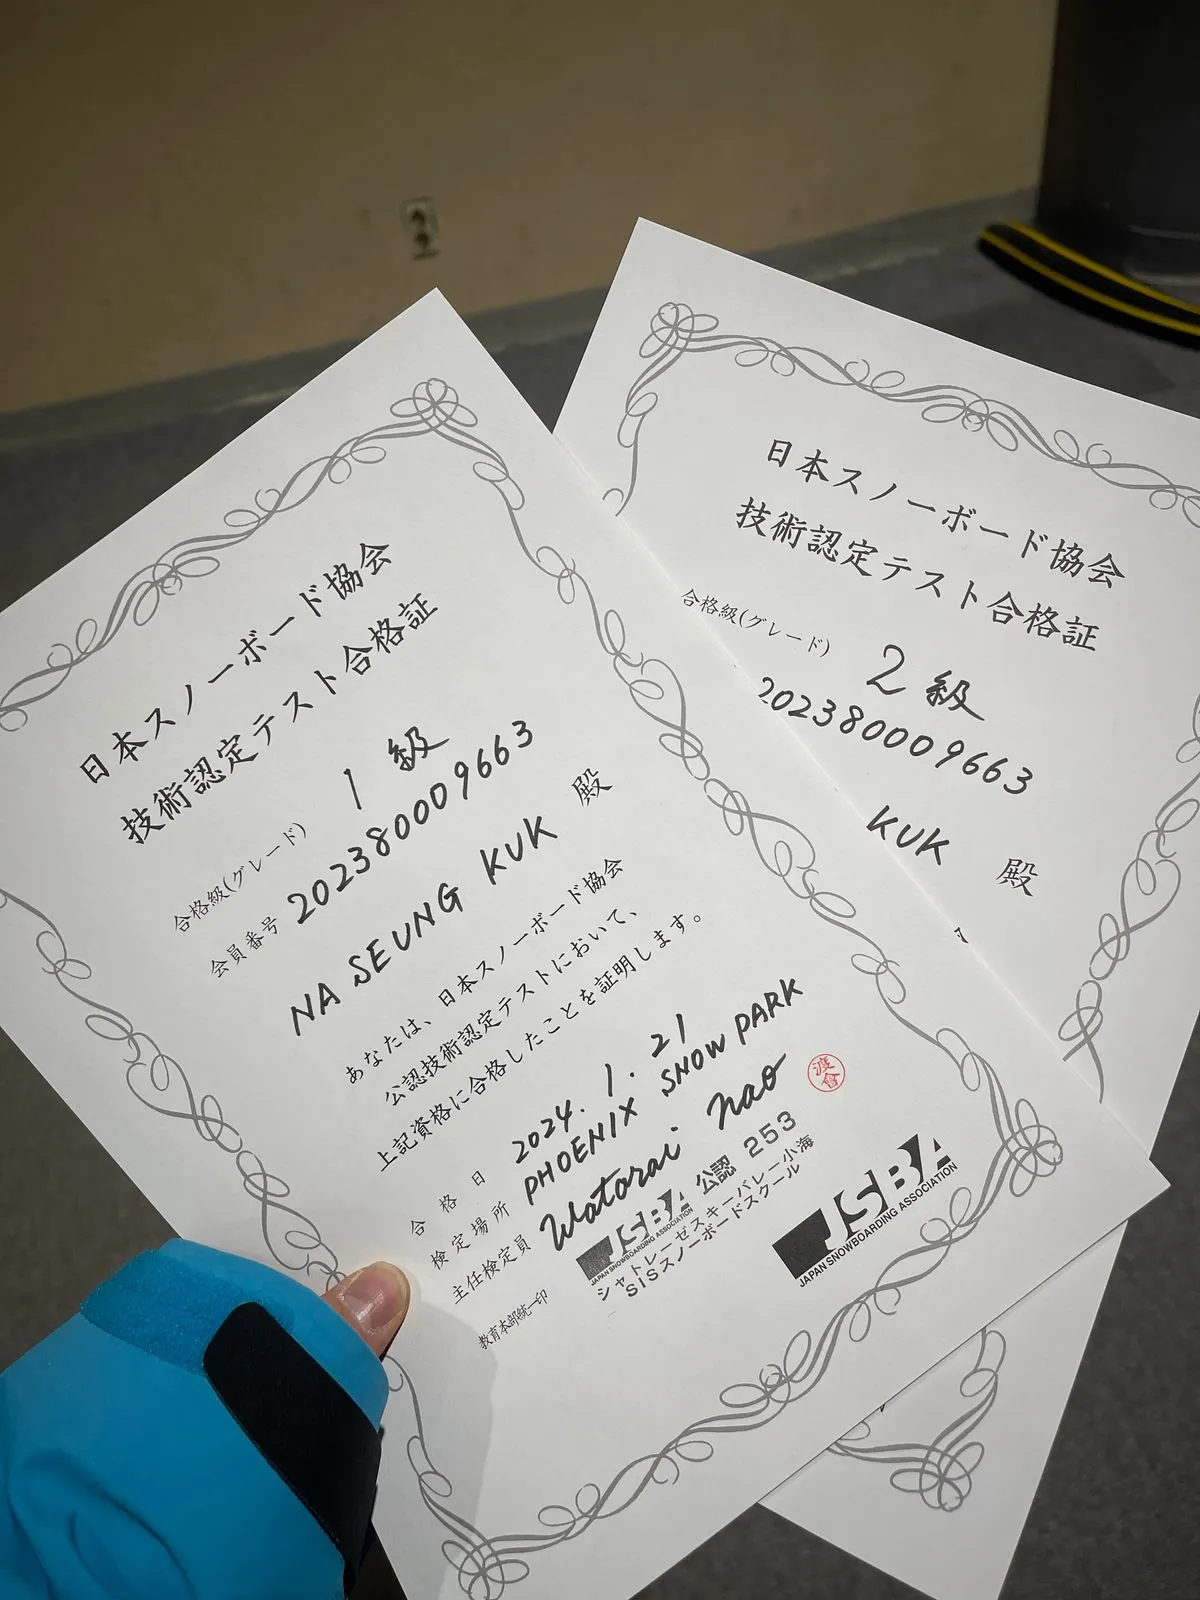 日本スノーボード協会
技術認定テスト合格証
合格級(グレード) 1級
会員番号 202380009663
NA SEUNG KUK 殿
あなたは、日本スノーボード協会
公認技術認定テストにおいて、
上記資格に合格したことを証明します。
合格日 2024. 1. 21
検定場所 PHOENIX SNOW PARK
主任検定員 Watarai nao 渡會
教育本部統一印
JSBA 公認 253
JAPAN SNOWBOARDING ASSOCIATION
シャトレーゼスキーバレー小海
SISスノーボードスクール
JSBA
JAPAN SNOWBOARDING ASSOCIATION
日本スノーボード協会
技術認定テスト合格証
合格級(グレード) 2級
202380009663
KUK 殿